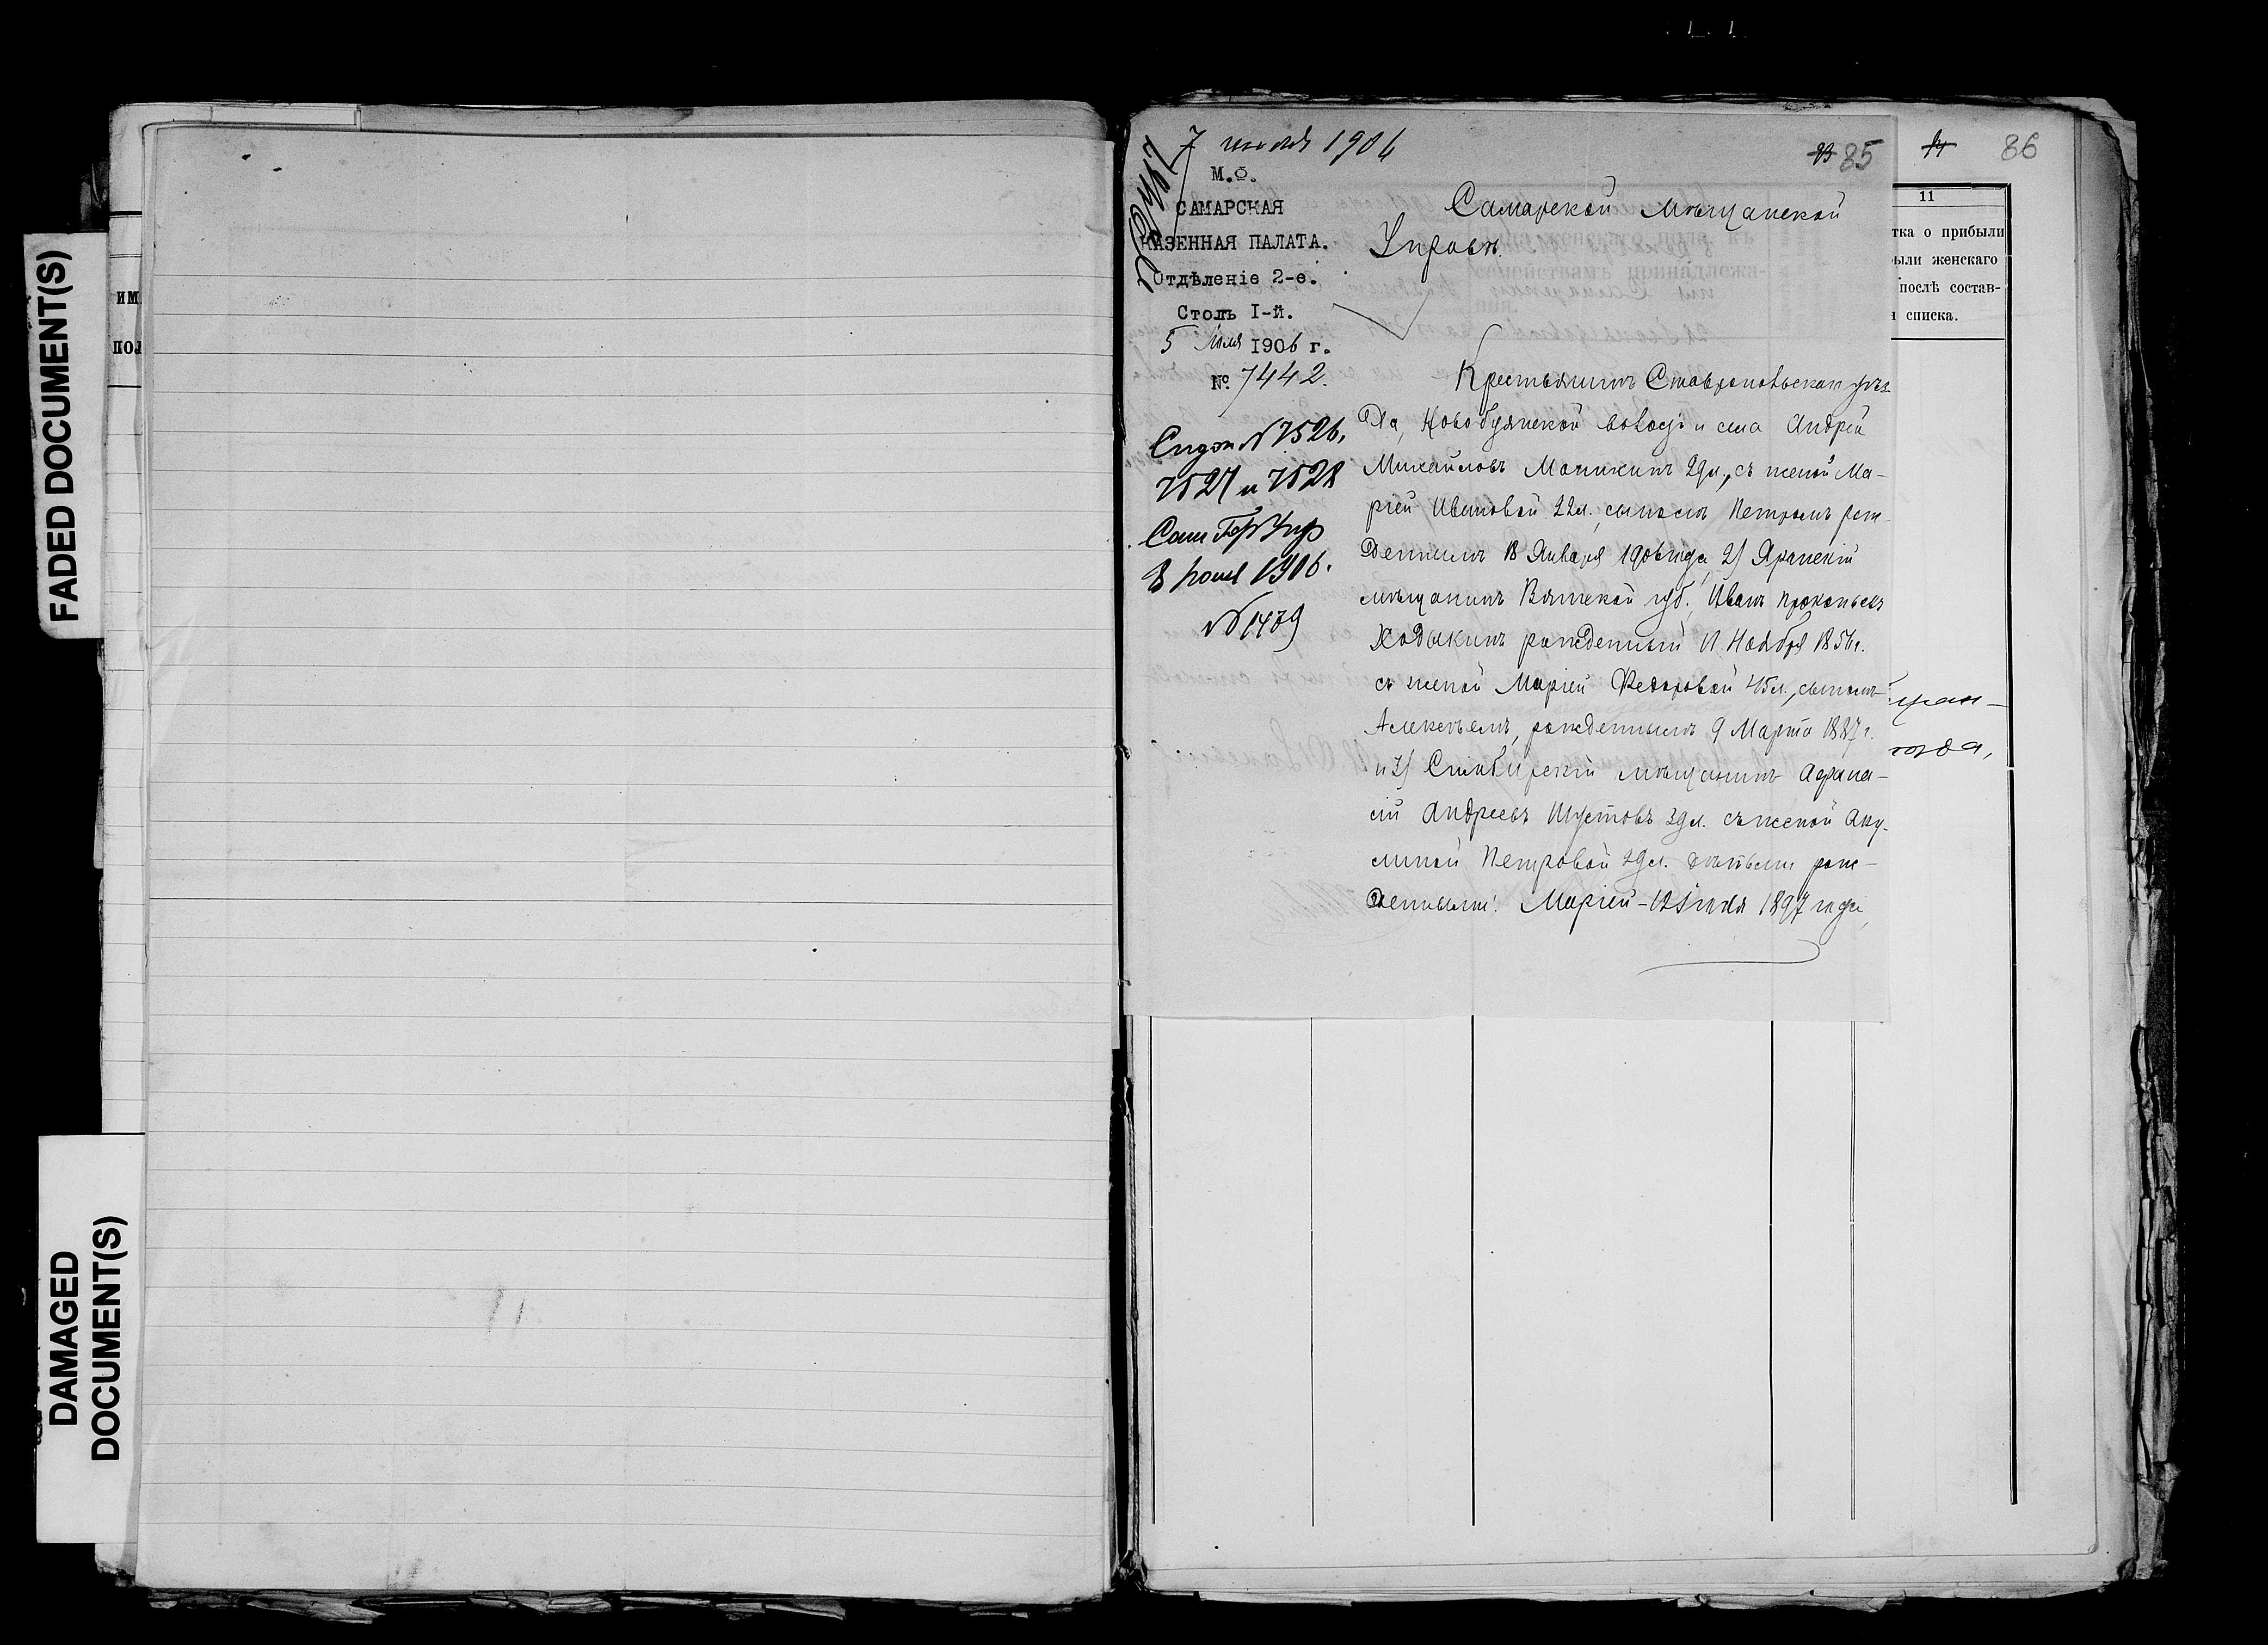 FADED DOCUMENT(S)
DAMAGED
DOCUMENT(S)
ИМ
ПОЛ
7 июля 1906
М.Ф.
САМАРСКАЯ
КАЗЕННАЯ ПАЛАТА.
Отдѣленіе 2-е.
Столъ I-й.
5 Іюля 1906 г.
№ 7442.
№ 7526,
7527 и 7528
8 1906.
№ 1479
85
Самарской Мѣщанской
Управѣ.
Крестьянинъ Ставропольскаго уѣз
да, Новобуянской волости и села Андрей
Михайловъ 29 л., съ женой Ма-
ріей Ивановой 22 л., сыномъ Петромъ рож-
деннымъ 18 Января 1906 года, 2) Яранскій
мѣщанинъ Вятской губ. Иванъ Прокопьевъ
Ходыкинъ рожденный 11 Ноября 1856 г.
съ женой Маріей Федоровой 45 л., сыномъ
Алексѣемъ, рожденнымъ 9 Марта 1887 г.
и 3) Симбирскій мѣщанинъ Афана-
сій Андреевъ Шустовъ 39 л. съ женой Аку-
линой Петровой 29 л. дѣтьми рож-
денными: Маріей - 12 Іюля 1897 года,
86
11
тка о прибыли
были женскаго
послѣ состав-
списка.
щан-
года,